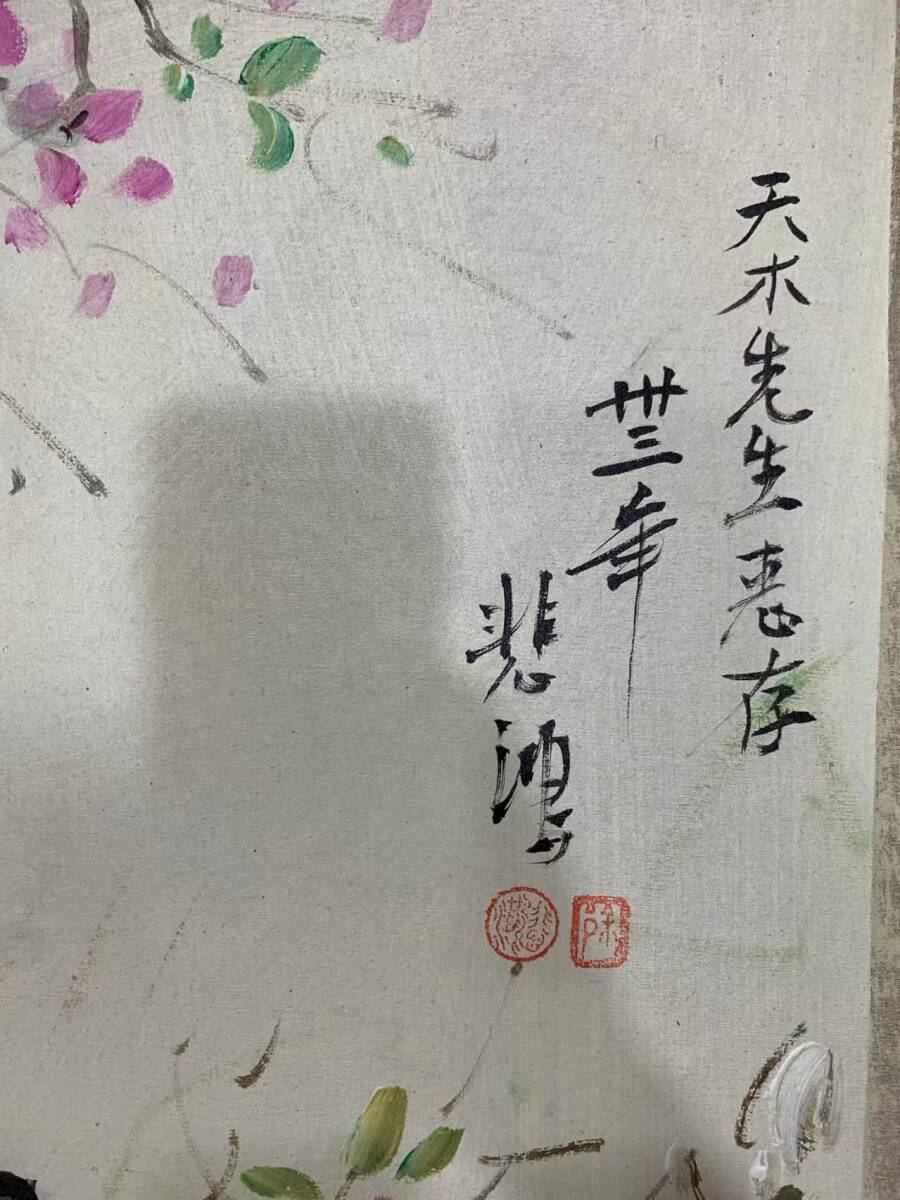 天木先生惠存
卅三年
悲鴻
徐